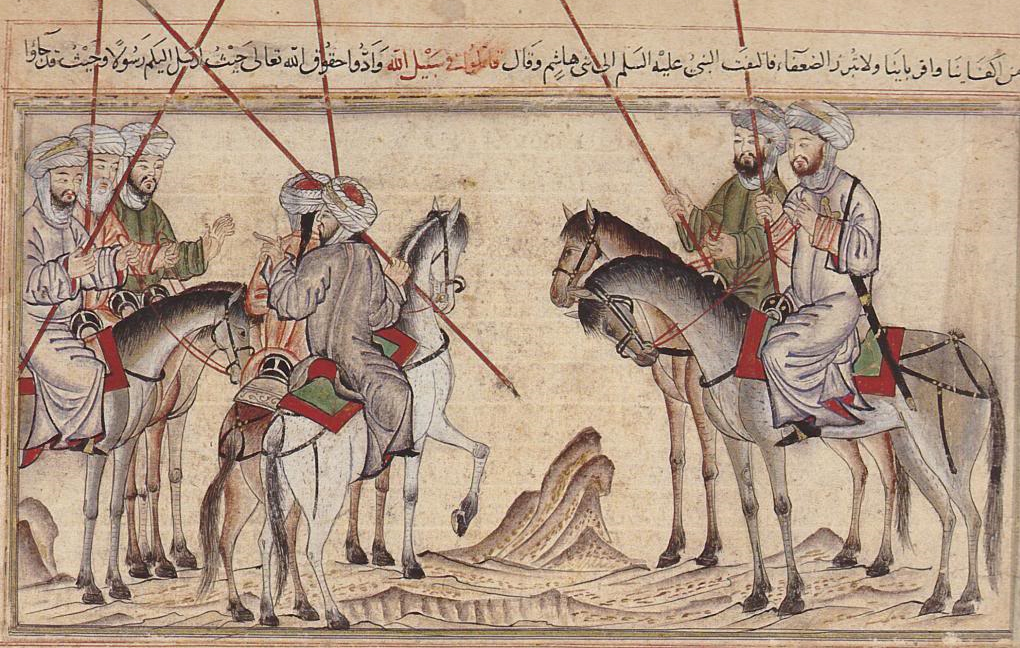 من اكفاينا واقرباينا ولا نبرز الضعفآء فالتفت النبي عليه السلم الى بنى هاشم وقال قاتلوا فى سبيل الله وَادّوا حقوق الله تعالى حيث ارسل اليكم رَسُولًا وحيث قد جاؤا